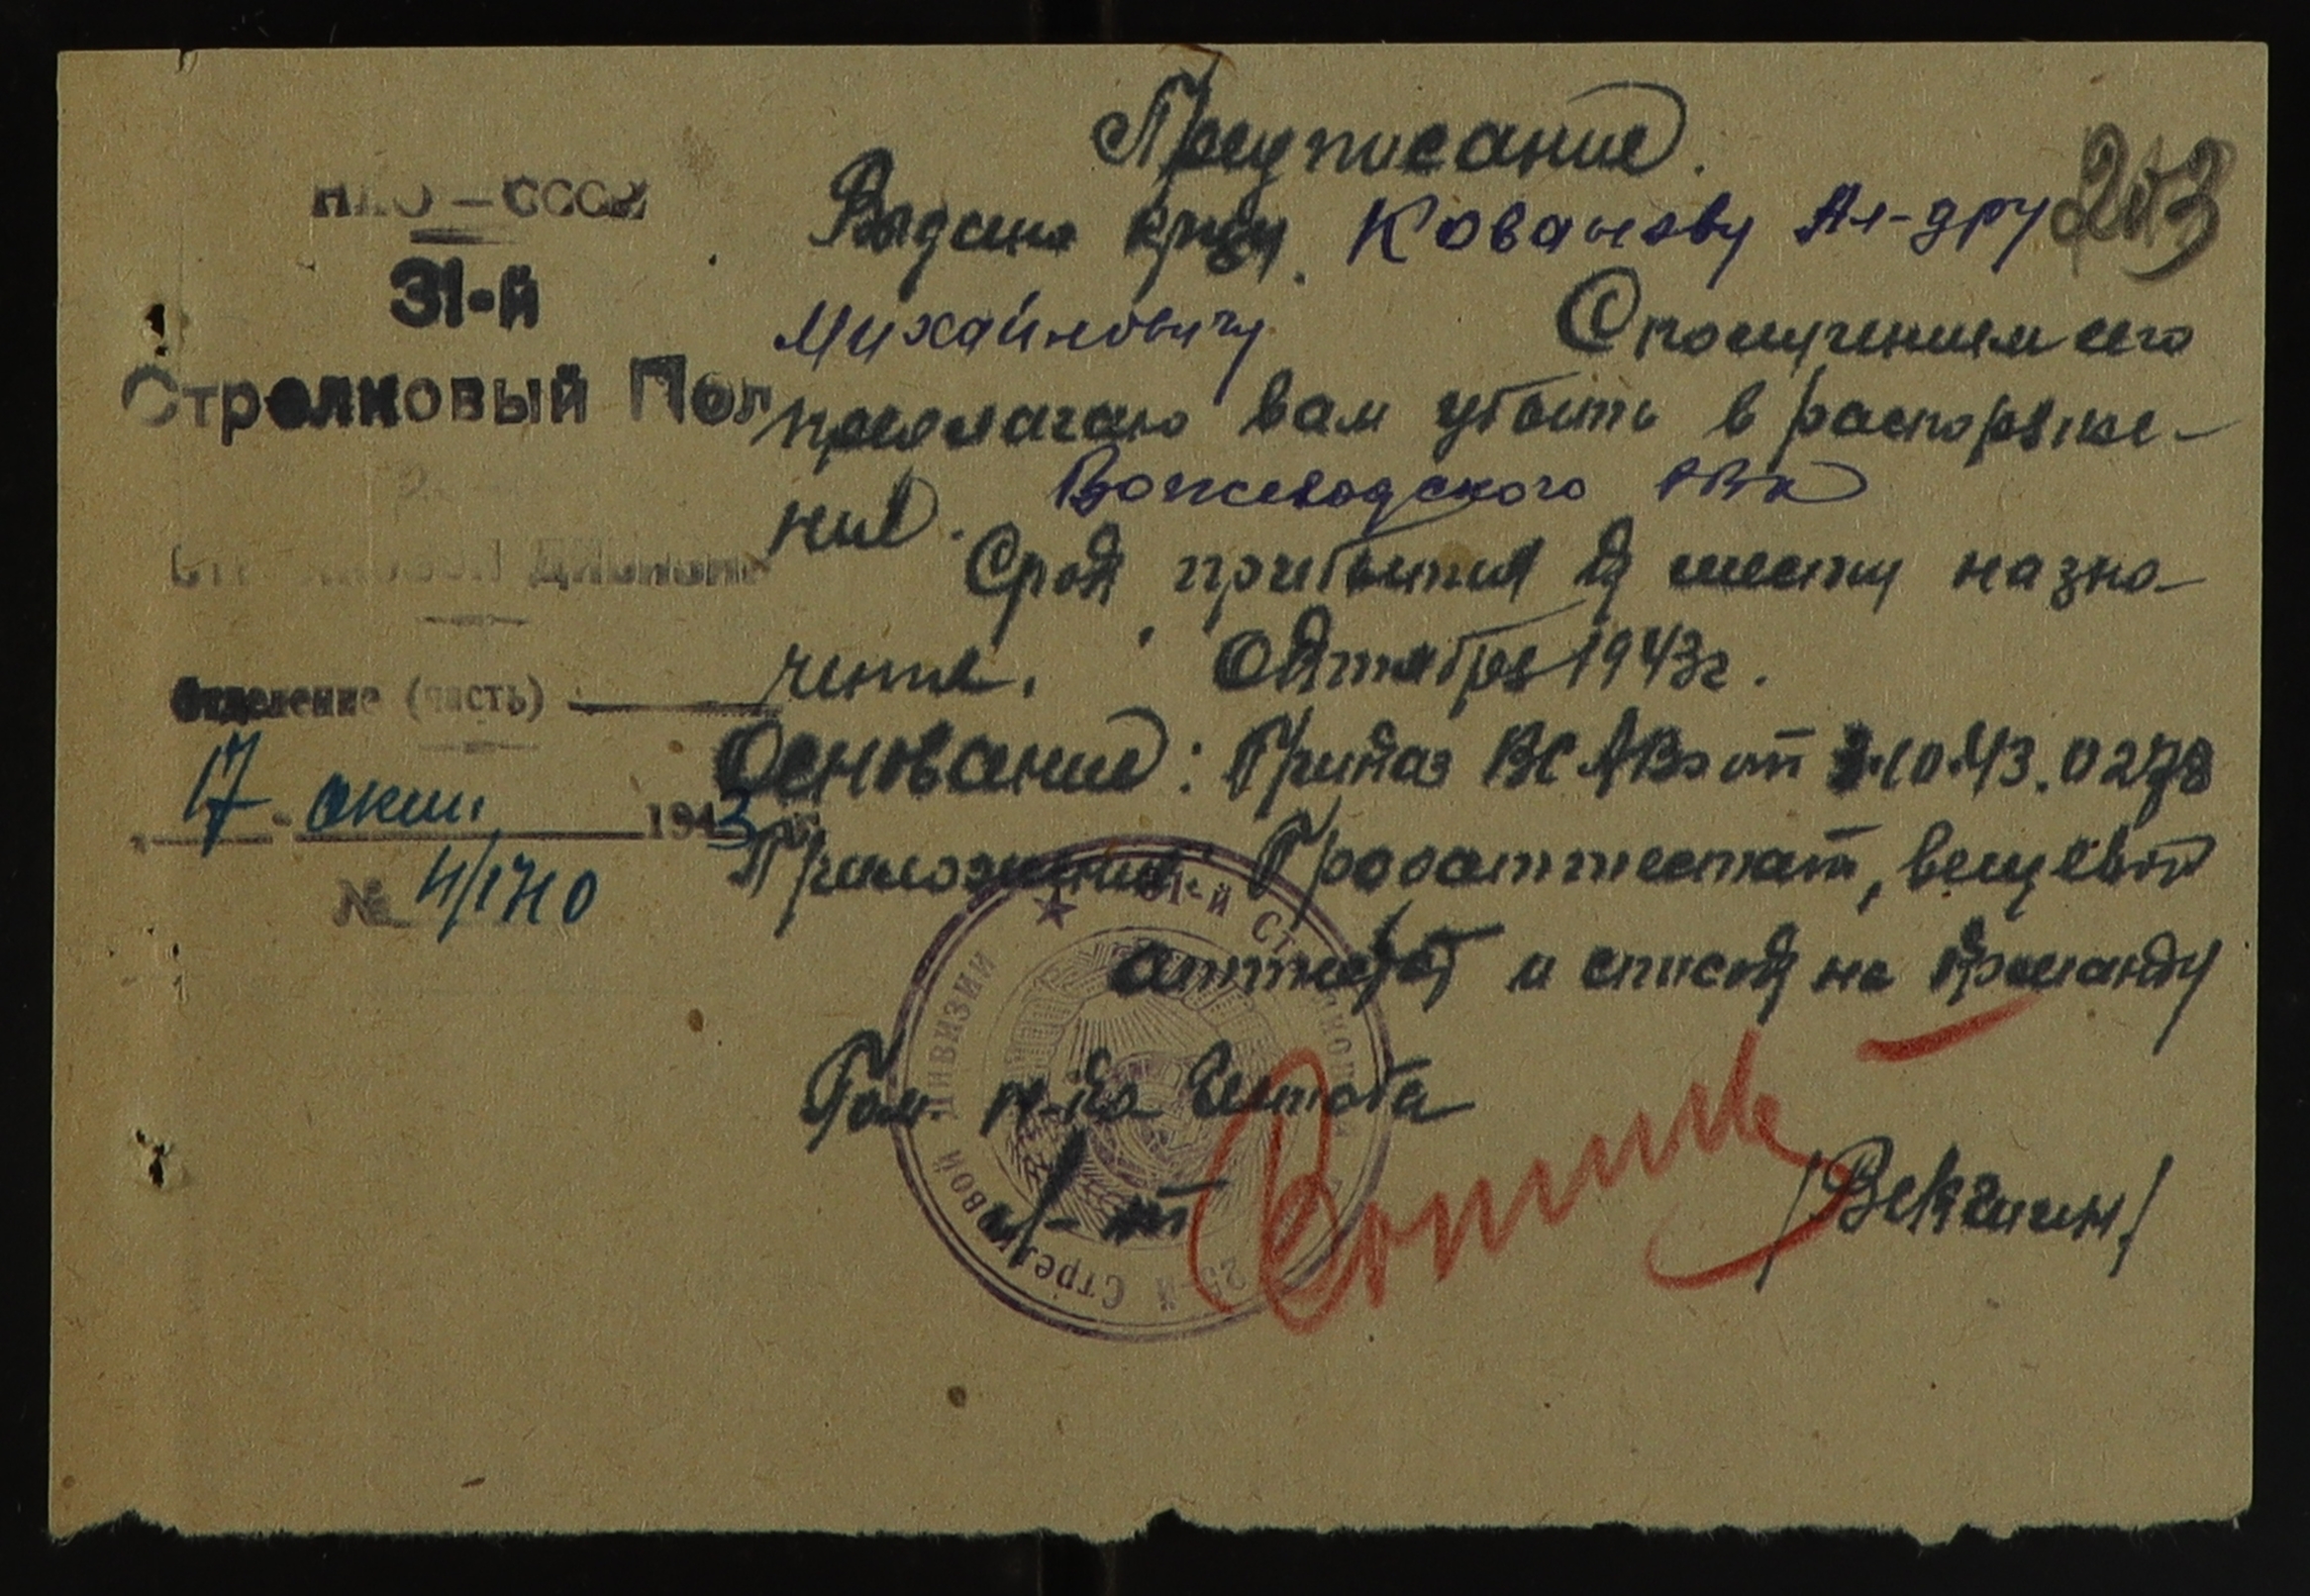 Предписание.
203
НКО – СССР
31-й
Стрелковый Пол
Стрелковой Дивизии
Отделение (часть)
17 - окт. 1943
№ 4/1710
Выдано кр-цу Кованову Ал-дру
Михайловичу Сполучением сего
предлагаю вам убыть в распоряже-
ние. Вожегодского РВК
Срок прибытия к месту назна-
чения. Октября 1943г.
Основание: Приказ ВС АВО от 10.43. 0278
Приложение: Продаттестат, вещевой
аттестат и список на команду
Пом. н-ка Штаба
/Векшин/
31-й Стрелковой дивизии